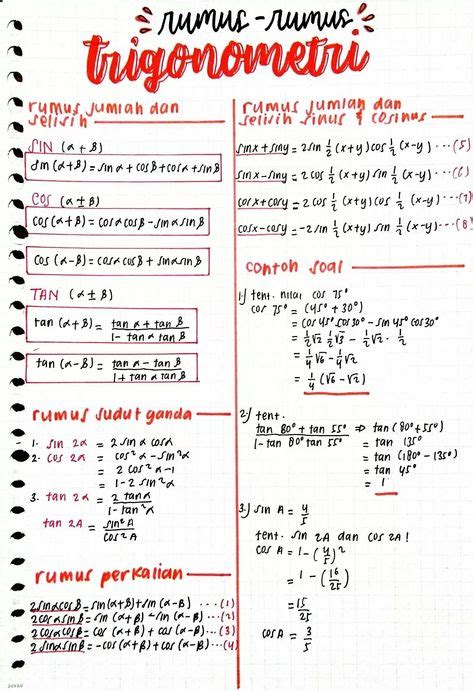 rumus-rumus
trigonometri
rumus jumlah dan
selisih
SIN (α ± β)
sin (α+β) = sin α + cos β + cos α + sin β
COS (α ± β)
cos (α+β) = cos α cos β - sin α sin β
cos (α-β) = cos α cos β + sin α sin β
TAN (α ± β)
tan (α+β) = tan α + tan β / 1 - tan α tan β
tan (α-β) = tan α - tan β / 1 + tan α tan β
rumus sudut ganda
1. sin 2α = 2 sin α cos α
2. cos 2α = cos²α - sin²α
= 2 cos²α - 1
= 1 - 2 sin²α
3. tan 2α = 2 tan α / 1 - tan²α
tan 2A = sin²A / cos²A
rumus perkalian
2 sin α cos β = sin (α+β) + sin (α-β) ... (1)
2 cos α sin β = sin (α+β) - sin (α-β) ... (2)
2 cos α cos β = cos (α+β) + cos (α-β) ... (3)
2 sin α sin β = -cos (α+β) + cos (α-β) ... (4)
rumus jumlah dan
selisih sinus & cosinus
sin x + sin y = 2 sin 1/2 (x+y) cos 1/2 (x-y) ... (5)
sin x - sin y = 2 cos 1/2 (x+y) sin 1/2 (x-y) ... (6)
cos x + cos y = 2 cos 1/2 (x+y) cos 1/2 (x-y) ... (7)
cos x - cos y = -2 sin 1/2 (x+y) sin 1/2 (x-y) ... (8)
contoh soal
1) tent. nilai cos 75°
cos 75° = (45° + 30°)
= cos 45° cos 30° - sin 45° cos 30°
= 1/2 √2 1/2 √3 - 1/2 √2 . 1/2
= 1/4 √6 - 1/4 √2
= 1/4 (√6 - √2)
2) tent.
tan 80° + tan 55° / 1 - tan 80° tan 55° ⇒ tan (80° + 55°)
= tan 135°
= tan (180° - 135)
= tan 45°
= 1
3) sin A = 4/5
tent. sin 2A dan cos 2A!
cos A = 1 - (4/5)²
= 1 - (16/25)
= 15/25
cos A = 3/5